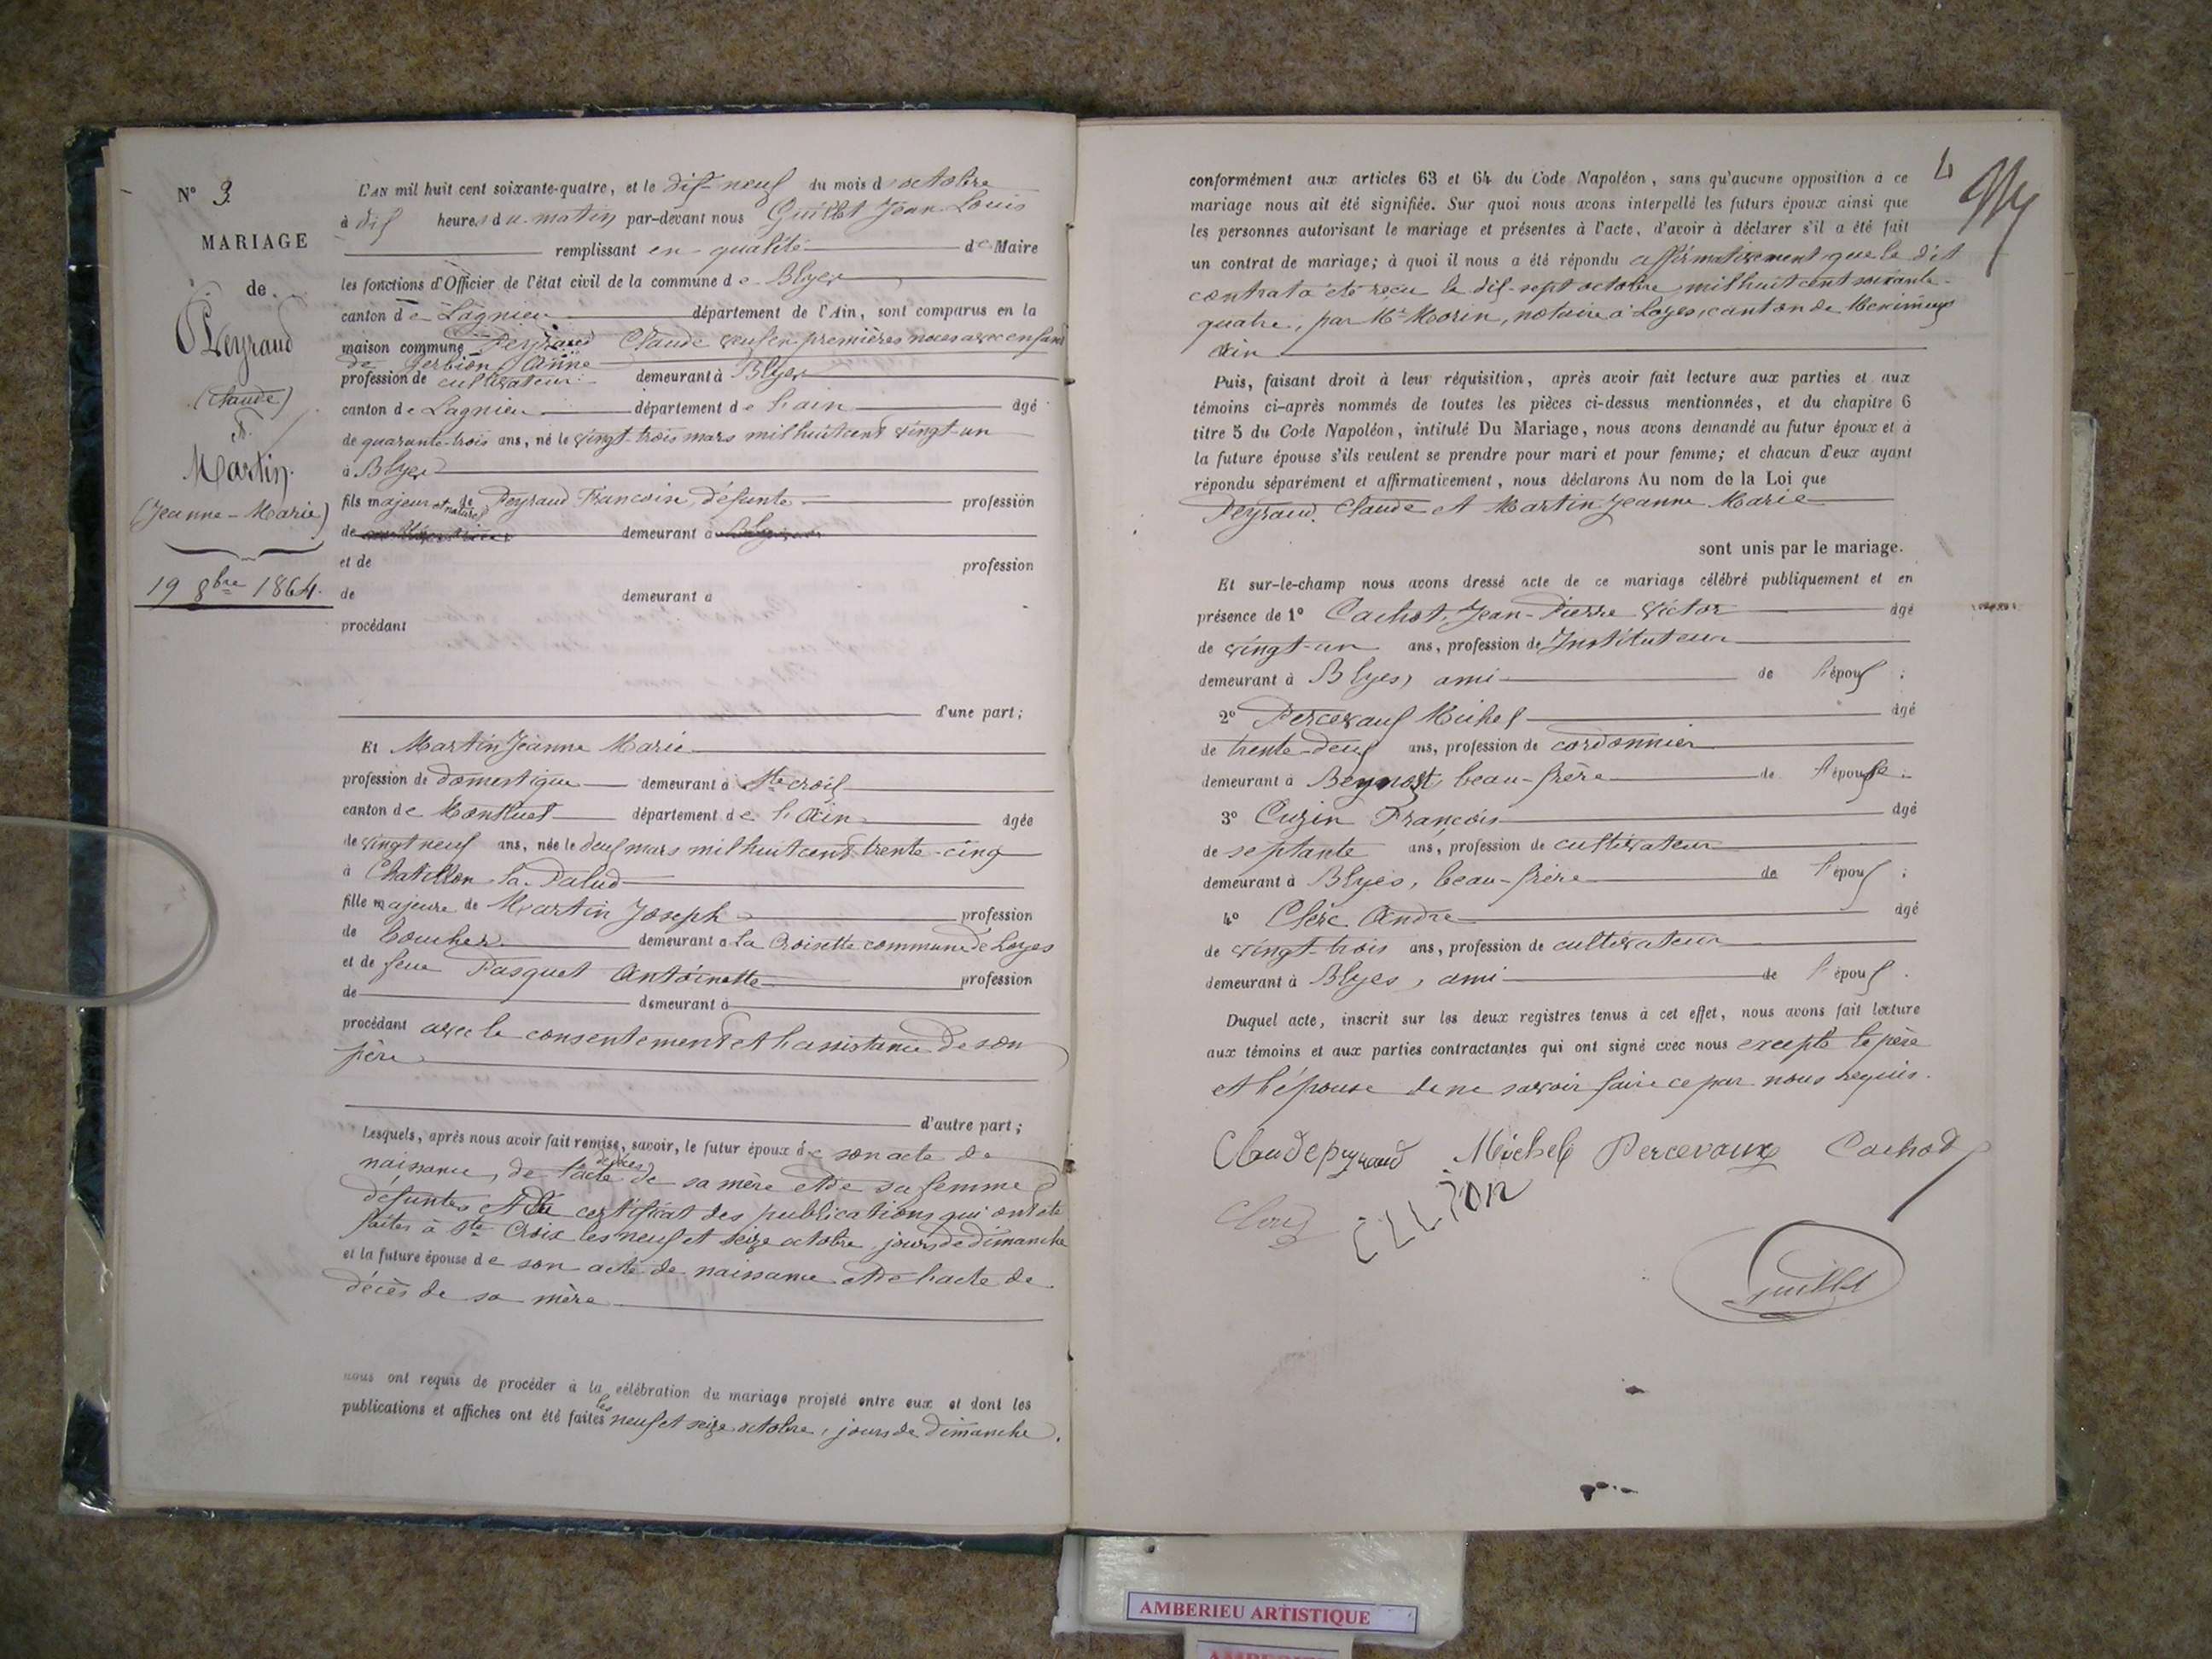 N° 3
MARIAGE
de
Peyraud
(Claude)
&
Martin.
(Jeanne-Marie)
19 8bre 1864.
L'AN mil huit cent soixante-quatre, et le dix-neuf du mois d'octobre
à dix heures du matin par-devant nous Guillet Jean Louis
remplissant en qualité de Maire
les fonctions d'Officier de l'état civil de la commune de Blyes
canton de Lagnieu département de l'Ain, sont comparus en la
maison commune Peyraud Claude veuf en premières noces avec enfans
de Gerbion Anne
profession de cultivateur demeurant à Blyes
canton de Lagnieu département de l'ain âgé
de quarante-trois ans, né le vingt-trois mars mil huit cent vingt-un
à Blyes
fils majeur et naturel de Peyraud Francoise, défunte profession
de demeurant à
et de profession
de demeurant à
procédant
d'une part;
Et Martin Jeanne Marie
profession de domestique demeurant à Ste croix
canton de Montluel département de l'Ain âgée
de vingt neuf ans, née le deux mars mil huit cent trente-cinq
à Chatillon la Palud
fille majeure de Martin Joseph profession
de demeurant à la Croisette commune de Loyes
et de feue Pasquet Antoinette profession
de demeurant à
procédant avec le consentement et l'assistance de son
père
d'autre part;
Lesquels, après nous avoir fait remise, savoir, le futur époux de son acte de
naissance, de l'acte de décès de sa mère et de sa femme
défuntes et du certificat des publications qui ont été
faites à Ste Croix les neuf et seize octobre, jours de dimanche
et la future épouse de son acte de naissance et de l'acte de
décès de sa mère
nous ont requis de procéder à la célébration du mariage projeté entre eux et dont les
publications et affiches ont été faites les neuf et seize octobre, jours de dimanche.
4
conformément aux articles 63 et 64 du Code Napoléon, sans qu'aucune opposition à ce
mariage nous ait été signifiée. Sur quoi nous avons interpellé les futurs époux ainsi que
les personnes autorisant le mariage et présentes à l'acte, d'avoir à déclarer s'il a été fait
un contrat de mariage; à quoi il nous a été répondu affirmativement que le dit
contrat a été reçu le dix-sept octobre mil huit cent soixante-
quatre, par Me Morin, notaire à Loyes, canton de Meximieux
Ain
Puis, faisant droit à leur réquisition, après avoir fait lecture aux parties et aux
témoins ci-après nommés de toutes les pièces ci-dessus mentionnées, et du chapitre 6
titre 5 du Code Napoléon, intitulé Du Mariage, nous avons demandé au futur époux et à
la future épouse s'ils veulent se prendre pour mari et pour femme; et chacun d'eux ayant
répondu séparément et affirmativement, nous déclarons Au nom de la Loi que
Peyraud Claude et Martin Jeanne Marie
sont unis par le mariage.
Et sur-le-champ nous avons dressé acte de ce mariage célébré publiquement et en
présence de 1° Cachot, Jean-Pierre Victor âgé
de vingt-un ans, profession de Instituteur
demeurant à Blyes, ami de l'époux;
2° Percevaux Michel âgé
de trente-deux ans, profession de cordonnier
demeurant à Beynost, beau-frère de l'épouse.
3° Cuzin François âgé
de septante ans, profession de cultivateur
demeurant à Blyes, beau-frère de l'époux;
4° Clerc André âgé
de vingt-trois ans, profession de cultivateur
demeurant à Blyes, ami de l'époux.
Duquel acte, inscrit sur les deux registres tenus à cet effet, nous avons fait lecture
aux témoins et aux parties contractantes qui ont signé avec nous excepté le père
et l'épouse de ne savoir faire ce par nous requis.
Claude peyraud Michel Percevaux Cachot
Clerc
Guillet
AMBERIEU ARTISTIQUE